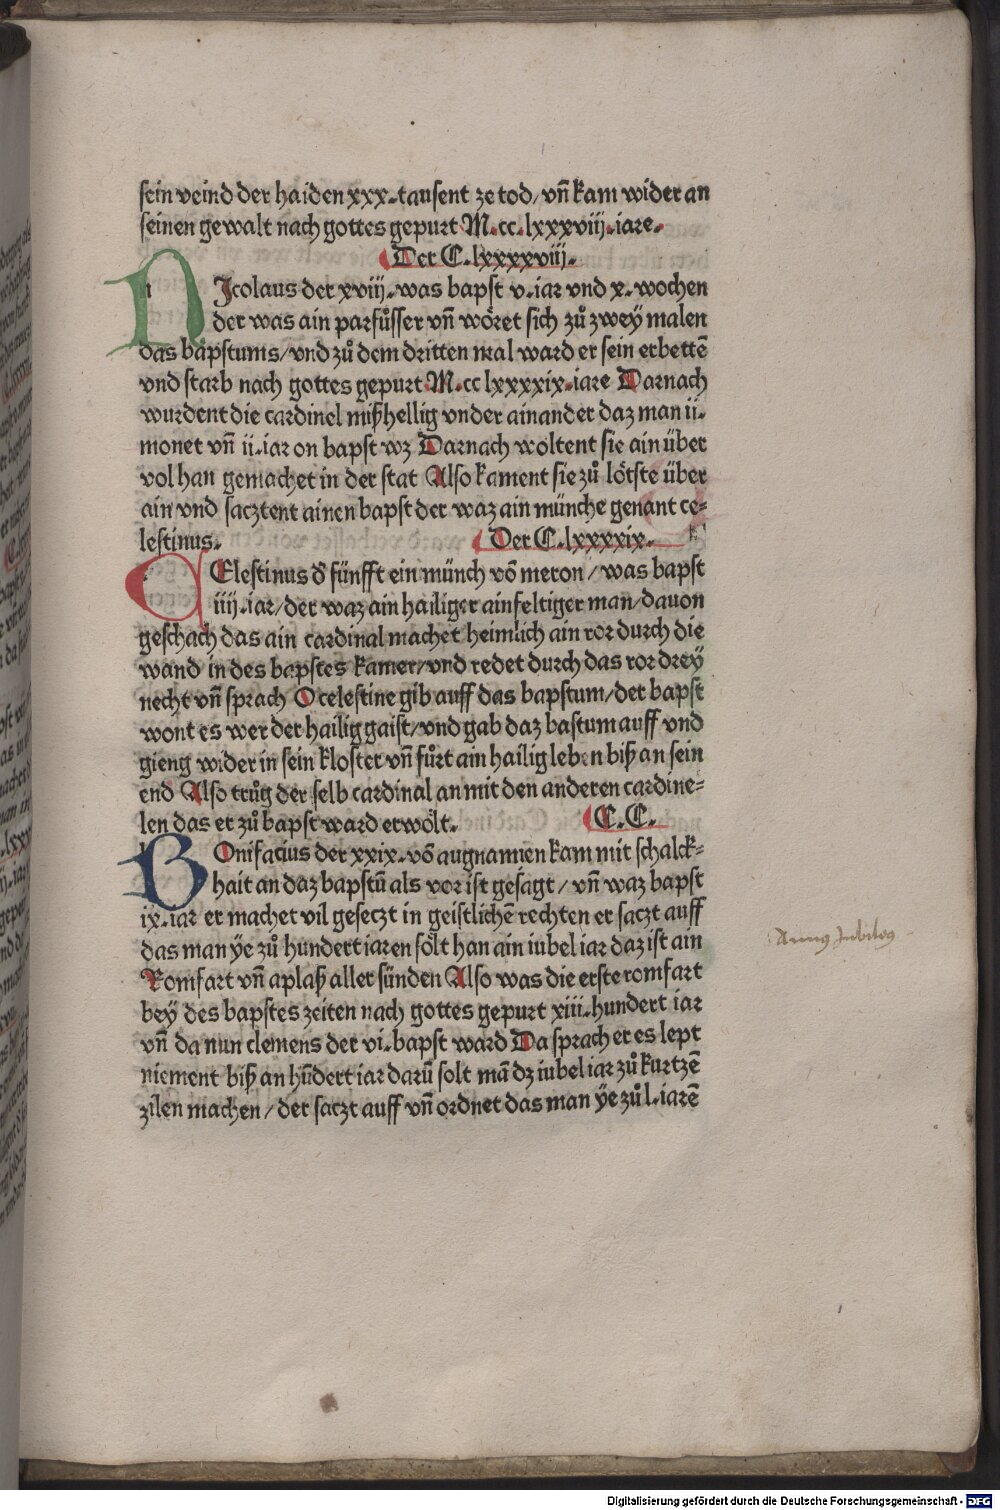 sein veind der haiden xxx. tausent ze tod/ vñ kam wider an
seinen gewalt nach gottes gepurt M. cc. lxxxviij. iare.
Der C. lxxxxviij.
NIcolaus der xviij. was bapst v. iar vnd x. wochen
der was ain parfůsser vñ wöret sich zů zwey malen
das bapstums/ vnd zů dem dritten mal ward er sein erbettē
vnd starb nach gottes gepurt M. cc lxxxxix. iare Darnach
wurdent die cardinel mißhellig vnder ainander daz man ii.
monet vñ ii. iar on bapst wz Darnach woltent sie ain über
vol han gemachet in der stat Also kament sie zů lötste über
ain vnd sacztent ainen bapst der waz ain münche genant ce=
lestinus.
Der C. lxxxxix.
CElestinus d̄ fünfft ein münch vō meron/ was bapst
iiij. iar/ der waz ain hailiger ainfeltiger man/ dauon
geschach das ain cardinal machet heimlich ain ror durch die
wand in des bapstes kamer/ vnd redet durch das ror drey
necht vñ sprach O celestine gib auff das bapstum/ der bapst
wont es wer der hailig gaist/ vnd gab daz bastum auff vnd
gieng wider in sein kloster vñ fůrt ain hailig leben biß an sein
end Also trůg der selb cardinal an mit den anderen cardine=
len das er zů bapst ward erwölt.
C. C.
BOnifacius der xxix. vō augnannien kam mit schalck=
hait an daz bapstū als vor ist gesagt/ vñ waz bapst
ix. iar er machet vil geseczt in geistlichē rechten er saczt auff
das man ÿe zů hundert iaren sölt han ain iubel iar daz ist ain
Romfart vñ aplaß aller sünden Also was die erste romfart
bey des bapstes zeiten nach gottes gepurt xiii. hundert iar
vñ da nun clemens der vi. bapst ward Da sprach er es lept
niement biß an hūdert iar darū solt mā dz iubel iar zů kurtzē
zilen machen/ der saczt auff vñ ordnet das man ÿe zů l. iarē
Annus Jubileus
Digitalisierung gefördert durch die Deutsche Forschungsgemeinschaft - DFG